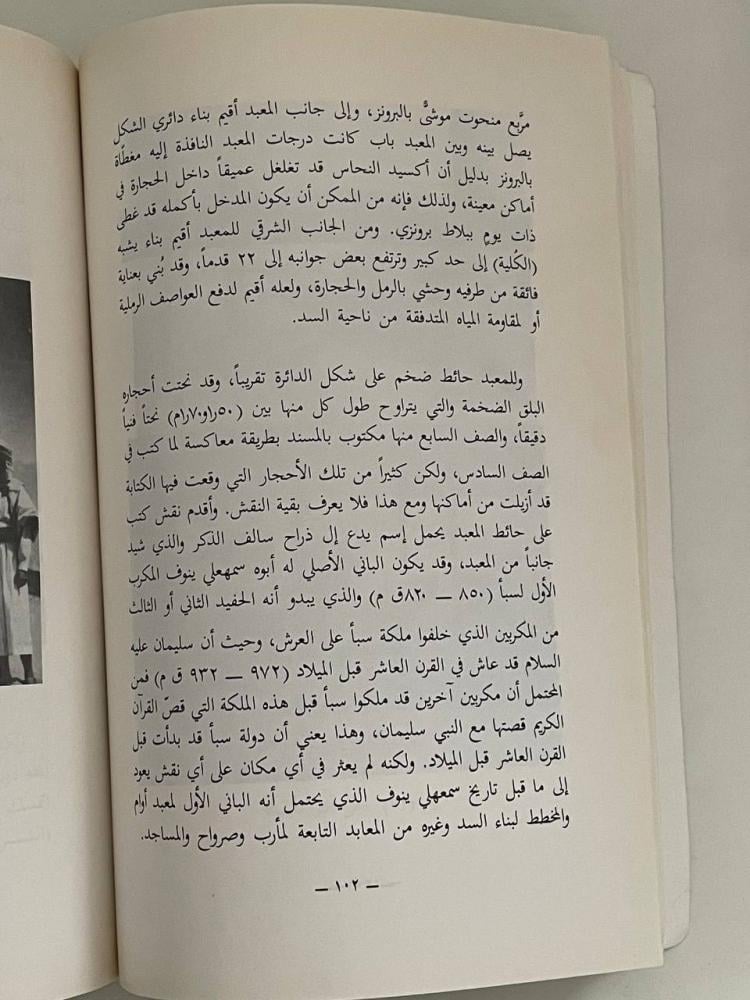 مربَّع منحوت موشىًّ بالبرونز، وإلى جانب المعبد أقيم بناء دائري الشكل
يصل بينه وبين المعبد باب كانت درجات المعبد النافذة إليه مغطّاة
بالبرونز بدليل أن أكسيد النحاس قد تغلغل عميقاً داخل الحجارة في
أماكن معينة، ولذلك فإنه من الممكن أن يكون المدخل بأكمله قد غطى
ذات يومٍ ببلاط برونزي. ومن الجانب الشرقي للمعبد أقيم بناء يشبه
(الكُلية) إلى حد كبير وترتفع بعض جوانبه إلى ٢٢ قدماً، وقد بُني بعناية
فائقة من طرفيه وحشي بالرمل والحجارة، ولعله أقيم لدفع العواصف الرملية
أو لمقاومة المياه المتدفقة من ناحية السد.
وللمعبد حائط ضخم على شكل الدائرة تقريباً، وقد نحتت أحجاره
البلق الضخمة والتي يتراوح طول كل منها بين (٥٠ر١و٧٠ر١م) نحتاً فنياً
دقيقاً، والصف السابع منها مكتوب بالمسند بطريقة معاكسة لما كتب في
الصف السادس، ولكن كثيراً من تلك الأحجار التي وقعت فيها الكتابة
قد أزيلت من أماكنها ومع هذا فلا يعرف بقية النقش. وأقدم نقش كتب
على حائط المعبد يحمل إسم يدع إل ذراح سالف الذكر والذي شيد
جانباً من المعبد، وقد يكون الباني الأصلي له أبوه سمهعلي ينوف المكرب
الأول لسبأ (٨٥٠ — ٨٢٠ق م) والذي يبدو أنه الحفيد الثاني أو الثالث
من المكربين الذي خلفوا ملكة سبأ على العرش، وحيث أن سليمان عليه
السلام قد عاش في القرن العاشر قبل الميلاد (٩٧٢ — ٩٣٢ ق م) فمن
المحتمل أن مكربين آخرين قد ملكوا سبأ قبل هذه الملكة التي قصّ القرآن
الكريم قصتها مع النبي سليمان، وهذا يعني أن دولة سبأ قد بدأت قبل
القرن العاشر قبل الميلاد. ولكنه لم يعثر في أي مكان على أي نقش يعود
إلى ما قبل تاريخ سمعهلي ينوف الذي يحتمل أنه الباني الأول لمعبد أوام
والمخطط لبناء السد وغيره من المعابد التابعة لمأرب وصرواح والمساجد.
— ١٠٢ —